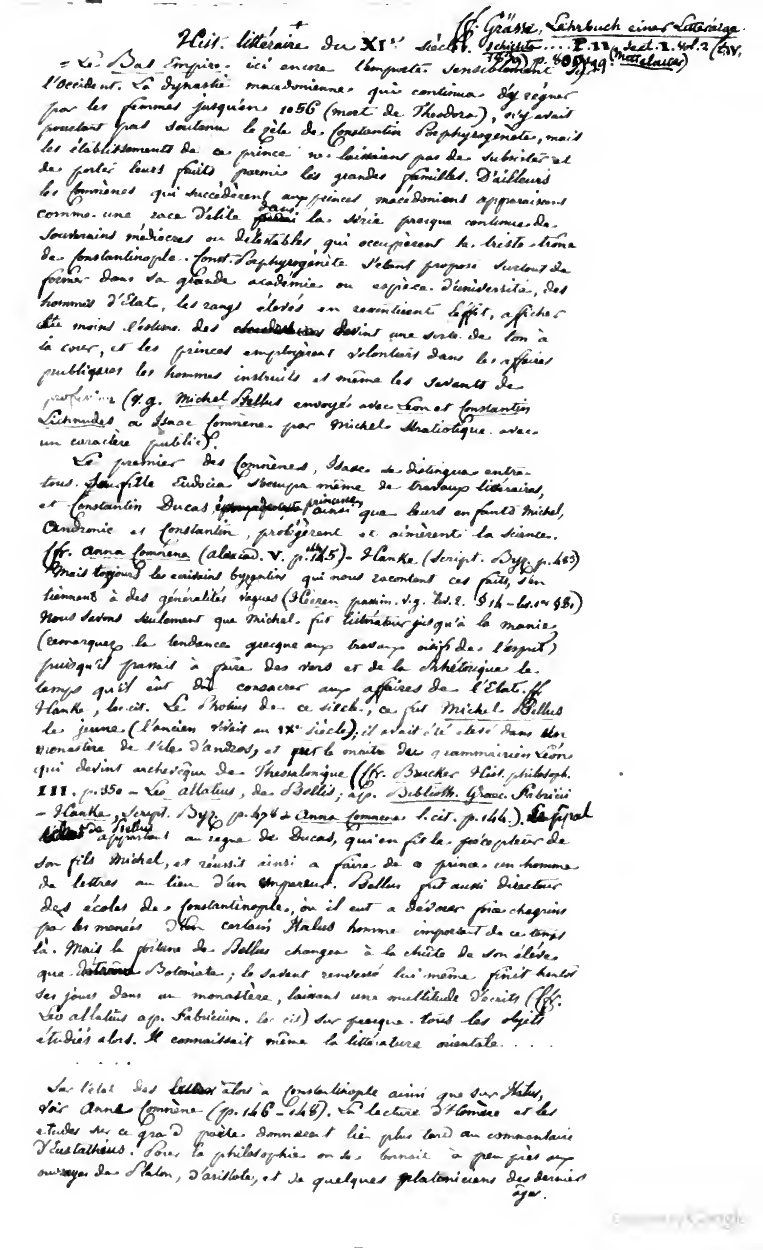 cf. Grässe, Lehrbuch einer Literärge-
Hist. littéraire du XIe siècle. schichte.... P. II, sect. 1. vol. 2 (t. IV.
1839) p. (Mittelalter)
= Le Bas Empire ici encore l'emporte sensiblement sur
l'Occident. La dynastie macédonienne qui continua d'y régner
par les femmes jusqu'en 1056 (mort de Theodora), n'y avait
pourtant pas soutenu le zèle de Constantin Porphyrogénète, mais
les établissements de ce prince ne laissaient pas de subsister et
de porter leurs fruits parmi les grandes familles. D'ailleurs
les Comnènes qui succédèrent aux princes macédoniens apparaissent
comme une race d'élite dans la série presque continue de
souverains médiocres ou détestables qui occupèrent le triste trône
de Constantinople. Const. Porphyrogénète s'étant proposé surtout de
former dans sa grande académie ou espèce d'université, des
hommes d'Etat, les rangs élevés en ressentirent l'effet, afficher
du moins l'estime des devint une sorte de ton à
la cour, et les princes employèrent volontiers dans les affaires
publiques les hommes instruits et même les savants de
profession (v.g. Michel Psellus envoyé avec Léon et Constantin
Lichnudes à Isaac Comnène par Michel Stratiotique avec
un caractère public).
Le premier des Comnènes, Isaac se distingua entre
tous. Sa fille Eudocia s'occupa même de travaux littéraires,
et Constantin Ducas ainsi que leurs enfants Michel,
Andronic et Constantin, protégèrent et aimèrent la science.
(Cfr. Anna Comnena (Alexiad. V. p. 145) - Hanke (Script. Byz. p. 483)
Mais toujours les écrivains byzantins qui nous racontent ces faits, s'en
tiennent à des généralités vagues (Heeren passim. v.g. liv. 2. § 14 - liv. 1er § 81)
Nous savons seulement que Michel fut littérateur jusqu'à la manie,
(remarquez la tendance grecque aux travaux oisifs de l'esprit)
puisqu'il passait à faire des vers et de la rhétorique le
temps qu'il eût dû consacrer aux affaires de l'Etat. cf.
Hanke, loc. cit. Le Photius de ce siècle, ce fut Michel Psellus
le jeune (l'ancien vivait au IXe siècle); il avait été élevé dans un
monastère de l'île d'Andros, et fut le maître du grammairien Léon
qui devint archevêque de Thessalonique (Cfr. Brucker Hist. philosoph.
III. p. 350 - Leo Allatius, de Psellis; ap. Biblioth. Graec. Fabricii
- Hanke, Script. Byz. p. 478 & Anna Comnena l. cit. p. 144).
de Psellus appartint au règne de Ducas, qui en fit le précepteur de
son fils Michel, et réussit ainsi à faire de ce prince un homme
de lettres au lieu d'un empereur. Psellus fut aussi directeur
des écoles de Constantinople, où il eut à dévorer force chagrins
par les menées d'un certain Italus homme important de ce temps
là. Mais la fortune de Psellus changea à la chûte de son élève
que détrôna Botoniate; le savant renversé lui même finit bientôt
ses jours dans un monastère, laissant une multitude d'écrits (Cfr.
Leo Allatius ap. Fabricium. loc. cit) sur presque tous les objets
étudiés alors. Il connaissait même la littérature orientale. . . .
. . . . .
Sur l'état des lettres alors à Constantinople ainsi que sur Italus,
voir Anne Comnène (pp. 146 - 148). La lecture d'Homère et les
études sur ce grand poète donnèrent lieu plus tard au commentaire
d'Eustathius. Pour la philosophie on se bornait à peu près aux
ouvrages de Platon, d'Aristote, et de quelques platoniciens des derniers
âges.